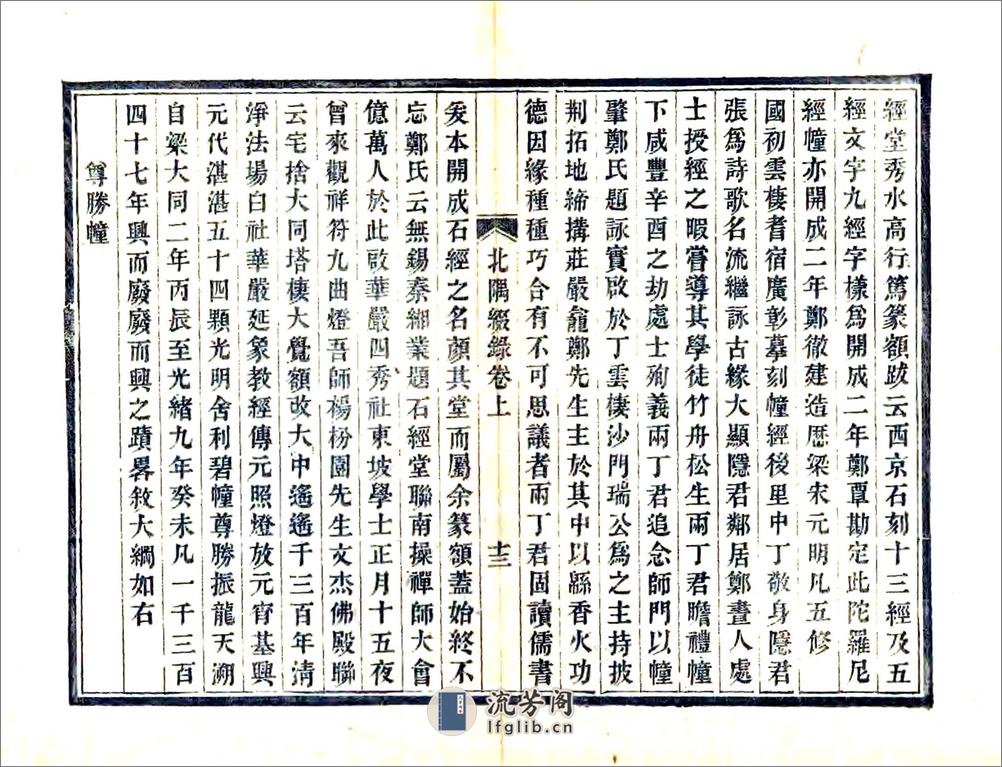 經堂秀水高行篤篆額跋云西京石刻十三經及五
經文字九經字樣爲開成二年鄭覃勘定此陀羅尼
經幢亦開成二年鄭徹建造歷梁宋元明凡五修
國初雲棲耆宿廣彰摹刻幢經後里中丁敬身隱君
張爲詩歌名流繼詠古緣大顯隱君鄰居鄭晝人處
士授經之暇嘗導其學徒竹舟松生兩丁君瞻禮幢
下咸豐辛酉之劫處士殉義兩丁君追念師門以幢
肇鄭氏題詠實啟於丁雲棲沙門瑞公爲之主持披
荆拓地締搆莊嚴龕鄭先生主於其中以縣香火功
德因緣種種巧合有不可思議者兩丁君固讀儒書
北隅綴錄卷上
十三
爰本開成石經之名顏其堂而屬余篆額蓋始終不
忘鄭氏云無錫秦緗業題石經堂聯南操禪師大會
億萬人於此啟華嚴四秀社東坡學士正月十五夜
曾來觀祥符九曲燈吾師楊枌園先生文杰佛殿聯
云宅捨大同塔棲大覺額改大中遙遙千三百年清
淨法場白社華嚴延象教經傳元照燈放元宵基興
元代湛湛五十四顆光明舍利碧幢尊勝振龍天溯
自梁大同二年丙辰至光緒九年癸未凡一千三百
四十七年興而廢廢而興之蹟畧敘大綱如右
尊勝幢
流芳阁
lfglib.cn